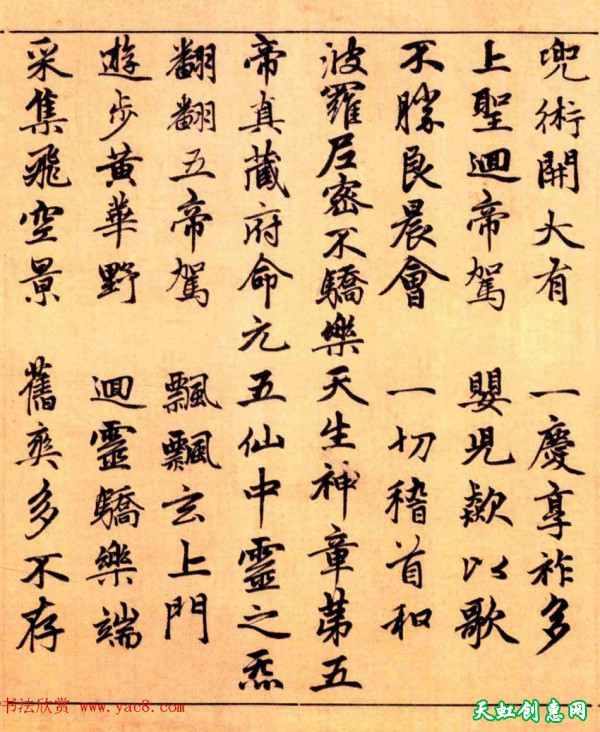 兜術開大有 一慶享祚多
上聖迴帝駕 嬰兒欸以歌
不勝良晨會 一切稽首和
波羅尼密不驕樂天生神章苐五
帝真藏府命元五仙中靈之炁
翩翩五帝駕 飄飄玄上門
遊步黄華野 迴靈驕樂端
采集飛空景 舊爽多不存
书法欣赏 www.yac8.com
天虹创惠网